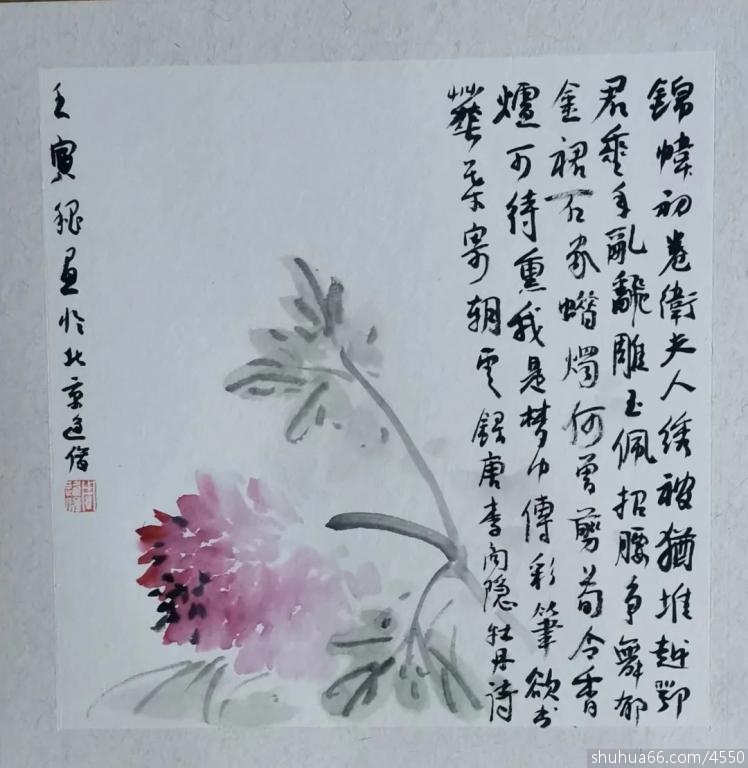 錦幃初卷衛夫人绣被猶堆越鄂
君垂手亂翻雕玉佩招腰争舞郁
金裙石家蠟燭何曾剪荀令香
爐可待熏我是梦中傳彩筆欲书
華葉寄朝雲録唐李商隐牡丹詩
壬寅穐画於北京
shuhua66.com/4550